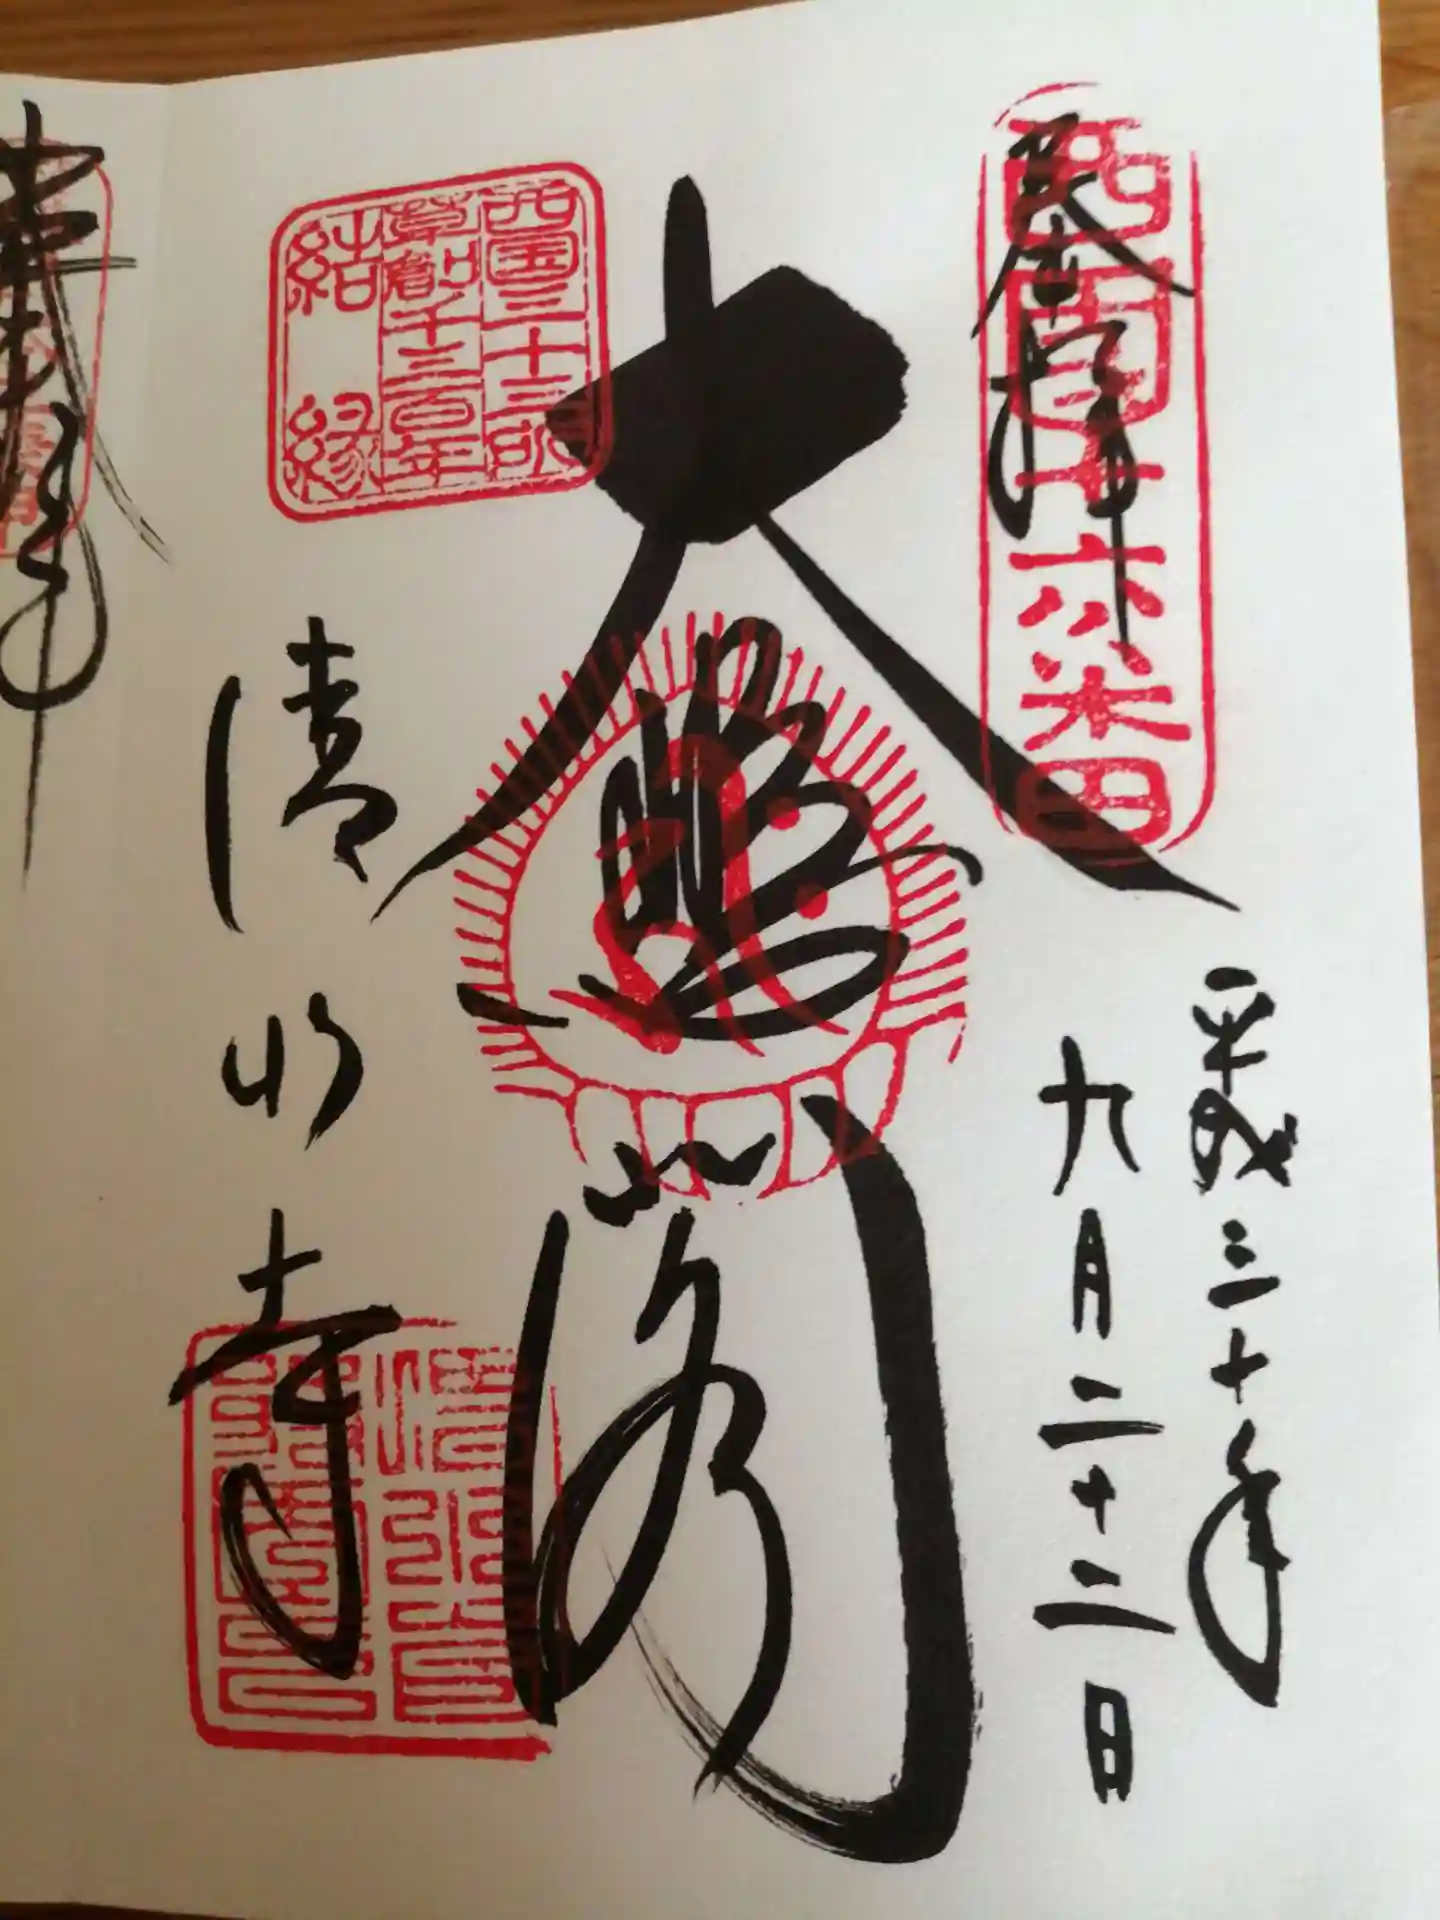 平成三十年
九月二十二日
奉拝
西国十六番
大悲閣
西国三十三所
草創千三百年
結縁
清水寺
奉拝